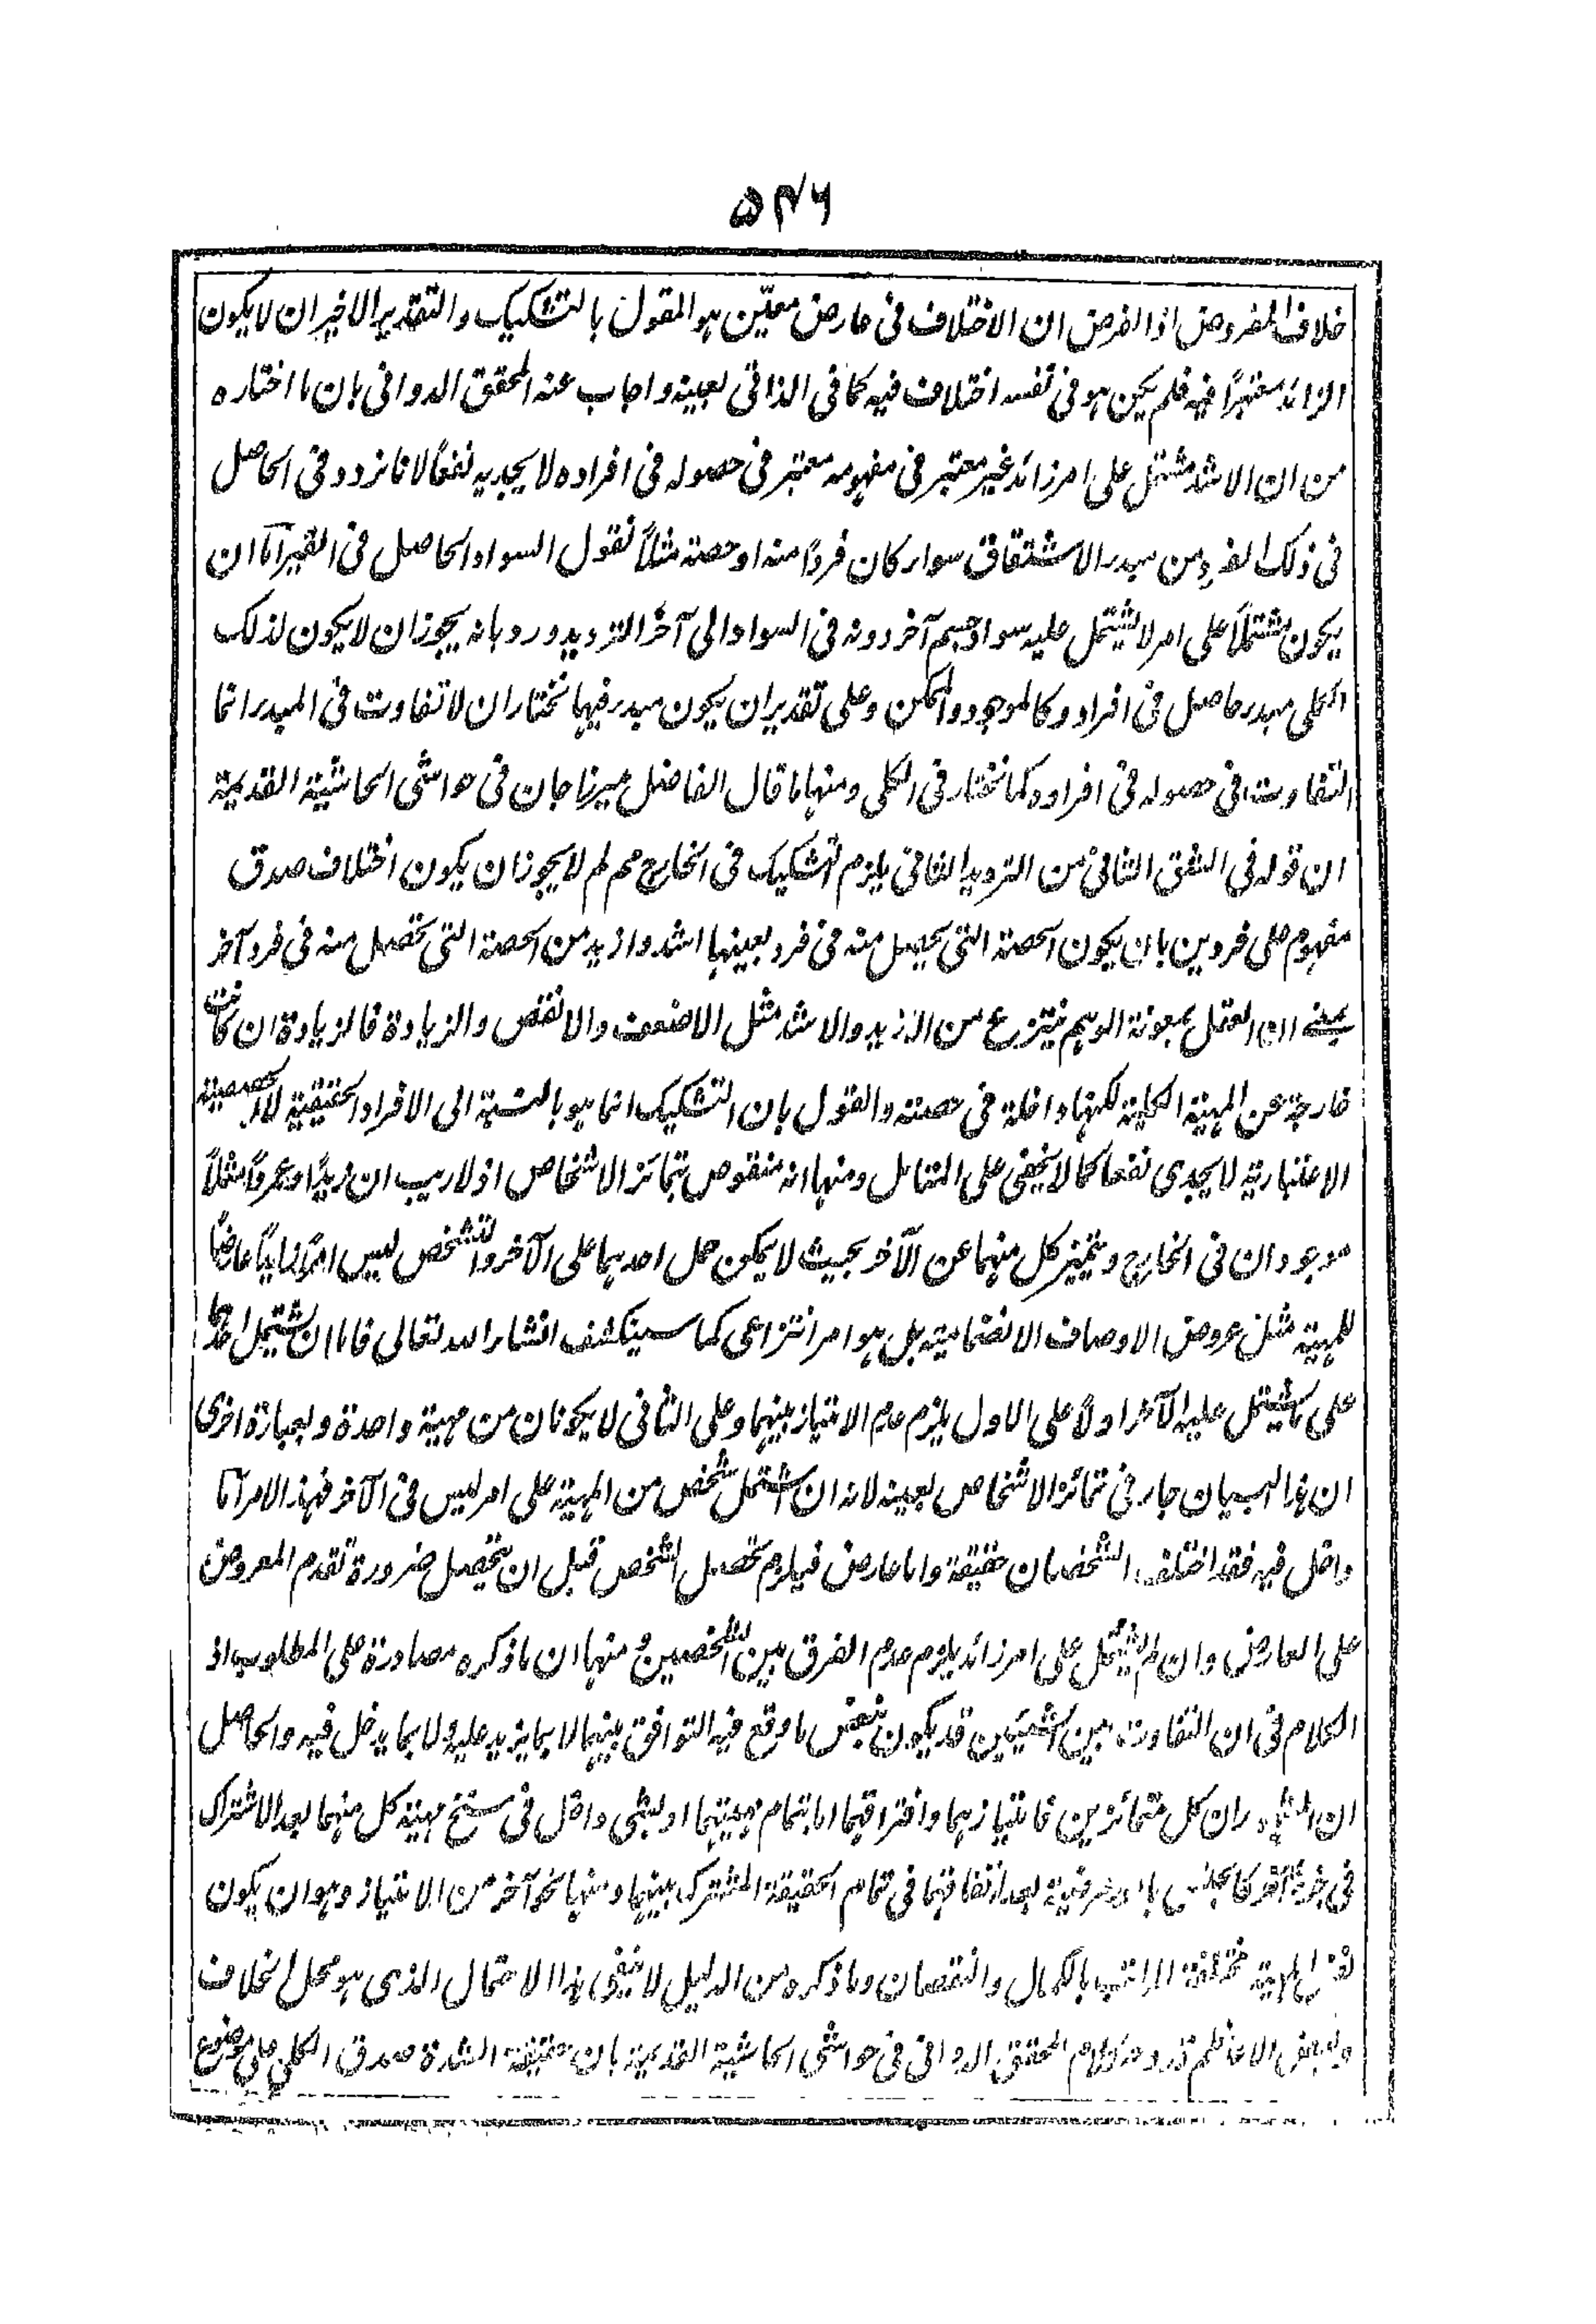 ۵۴۶
خلاف المفروض اذ الفرض ان الاختلاف فى عارض معيّن هو المقول بالتشكيك والتقدير الاخير ان لا يكون
الزائد معتبرًا فيه فلم يكن هو فى نفسه اختلاف فيه كما فى الذاتى بعينه واجاب عنه المحقق الدوانى بان ما اختاره
من ان الاشد مشتمل على امر زائد غير معتبر فى مفهومه معتبر فى حصوله فى افراده لا يجديه نفعًا لانا نردد فى الحاصل
فى ذلك الفرد من مبدء الاشتقاق سواء كان فردًا منه او حصة مثلًا نقول السواد الحاصل فى القير اما ان
يكون مشتملًا على امر لا يشتمل عليه سواد جسم آخر دونه فى السواد الى آخر الترديد ورد بانه يجوز ان لا يكون لذلك
الكلى مبدء حاصل فى افراده كالموجود والممكن وعلى تقدير ان يكون مبدء فيها نختار ان لا تفاوت فى المبدء انما
التفاوت فى حصوله فى افراده كما نختار فى الكلى ومنها ما قال الفاضل ميرزا جان فى حواشى الحاشية القديمة
ان قوله فى الشق الثانى من الترديد الثانى يلزم التشكيك فى الخارج مم لم لا يجوز ان يكون اختلاف صدق
مفهوم على فردين بان يكون الحصة التى يحصل منه فى فرد بعينها اشد وازيد من الحصة التى تحصل منه فى فرد آخر
بمعنى ان العقل بمعونة الوهم ينتزع من الازيد والاشد مثل الاضعف والانقص والزيادة فالزيادة ان كانت
خارجة عن المهية الكلية لكنها داخلة فى حصته والقول بان التشكيك انما هو بالنسبة الى الافراد الحقيقية لا الحصصية
الاعتبارية لا يجدى نفعا كما لا يخفى على المتامل ومنها انه منقوض بتمائز الاشخاص اذ لا ريب ان زيدًا وعمروًا مثلًا
موجودان فى الخارج ويتميز كل منهما عن الآخر بحيث لا يمكن حمل احدهما على الآخر والتشخص ليس امرًا زايدًا عارضًا
للمهية مثل عروض الاوصاف الانضمامية بل هو امر انتزاعى كما سينكشف انشاء الله تعالى فاما ان يشتمل احدهما
على ما يشتمل عليه الآخر او لا على الاول يلزم عدم الامتياز بينهما وعلى الثانى لا يكونان من مهية واحدة وبعبارة اخرى
ان هذا البيان جار فى تمائز الاشخاص بعينه لانه ان اشتمل شخص من المهية على امر ليس فى الآخر فهذا الامر اما
داخل فيه فقد اختلف الشخصان حقيقة واما عارض فيلزم تحصل الشخص قبل ان يتحصل ضرورة تقدم المعروض
على العارض وان لم يشتمل على امر زائد يلزم عدم الفرق بين الشخصين ومنها ان ما ذكره مصادرة على المطلوب اذ
الكلام فى ان التفاوت بين الشيئين قد يكون بنفس ما وقع فيه التوافق بينهما لا بما يزيد عليه ولا بما يدخل فيه والحاصل
ان ران كل متمائزين فامتيازهما وافتراقهما اما بتمام مهيتهما او بشئ داخل فى سنخ مهية كل منهما بعد الاشتراك
فى جزء آخر كالجنس بعد اتفاقهما فى تمام الحقيقة المشتركة بينهما ومنها نحو آخر من الامتياز وهو ان يكون
نفس المهية مختلفة المراتب بالكمال والنقصان وما ذكره من الدليل لا ينفى هذا الاحتمال الذى هو محل الخلاف
وبعض الاعاظم قدوجه كلام المحقق الدوانى فى حواشى الحاشية القديمة بان حقيقة الشدة صدق الكلى على موضوع